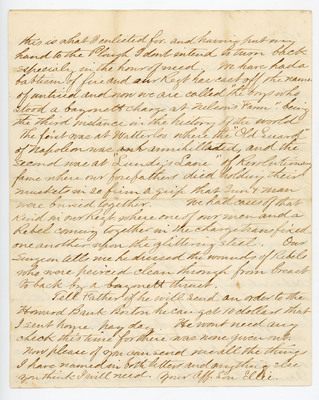 this is what I enlisted for. and having put my
hand to the Plough I dont intend to turn back
especialy in the hour of need. We have had a
batism of fire and our Regt has cast off the name
of untried and now we are called "the boys who
stood a bayonett charge at Nelson's Farm" being
the third instance in the history of the world
The first was at Watterloo where the "Old Guard"
of Napoleon was anihilated, and the
second was at "Lundy's Lane" of Revolutionary
fame where our forefathers died holding their
muskets in so firm a grip that gun & man
were buried together. We had cases of that
kind in our Regt where one of our men and a
Rebel coming together in the charge transfixed
one another upon the glittering steel. Our
Surgeon tells me he dressed the wounds of Rebels
who were peirced clean through from breast
to back by a bayonett thrust.
Tell Father if he will send an order to the
Howard Bank Boston he can get 10 dollars that
I sent home pay day. He wont need any
check this time for there was none given out.
Now please if you can send me all the things
I have named in both letters and anything else
you think I will need. Your Aff. Son